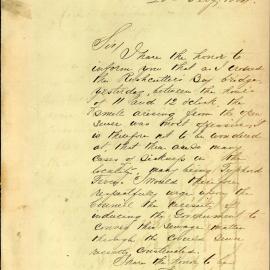 Sir
I have the honor to
inform you that as I crossed
the Rushcutters Bay bridge
yesterday, between the hours
of 11 and 12 o'clock, the
smell arising from the open
sewer was most
is therefore not to be wondered
at, that there are so many
cases of sickness in the
locality, many being Typhoid
Fever. I would therefore
respectfully urge upon the
Council the necessity of
inducing the Government to
convey this sewage matter
through the covered sewer
recently constructed.
I have the honor to be